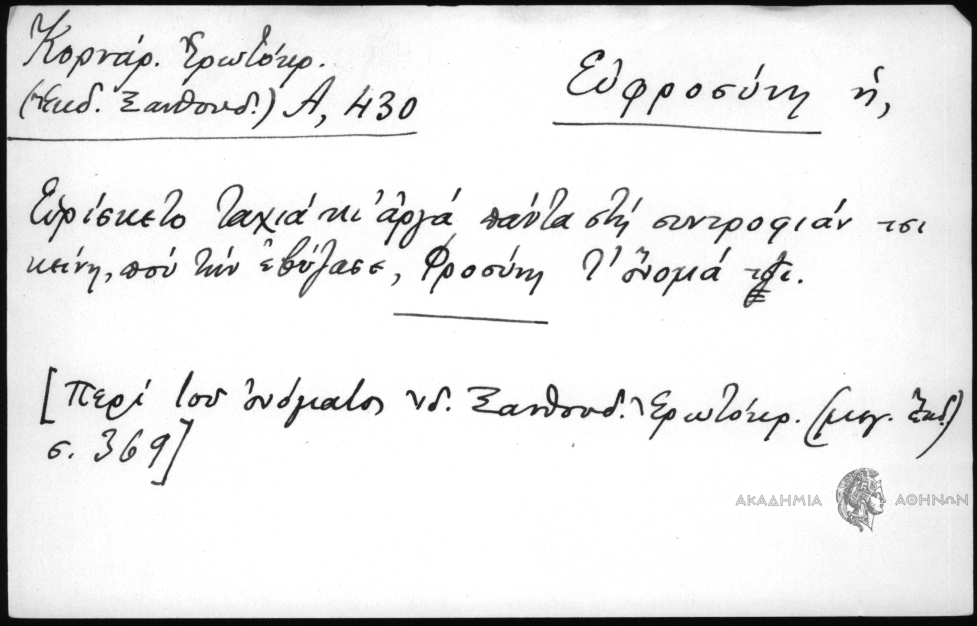 Κορνάρ. Ἐρωτόκρ.
(ἔκδ. Ξανθουδ.) Α, 430
Εὐφροσύνη ἡ,
Εὑρίσκετο ταχιά κι' ἀργά πάντα στή συντροφιάν τσι
κείνη, πού τήν ἐβύζασε, Φροσύνη τ' ὄνομά τζι.
[Περί τοῦ ὀνόματος ἰδ. Ξανθουδ. Ἐρωτόκρ. (μεγ. ἔκδ.)
σ. 369]
ΑΚΑΔΗΜΙΑ ΑΘΗΝΩΝ